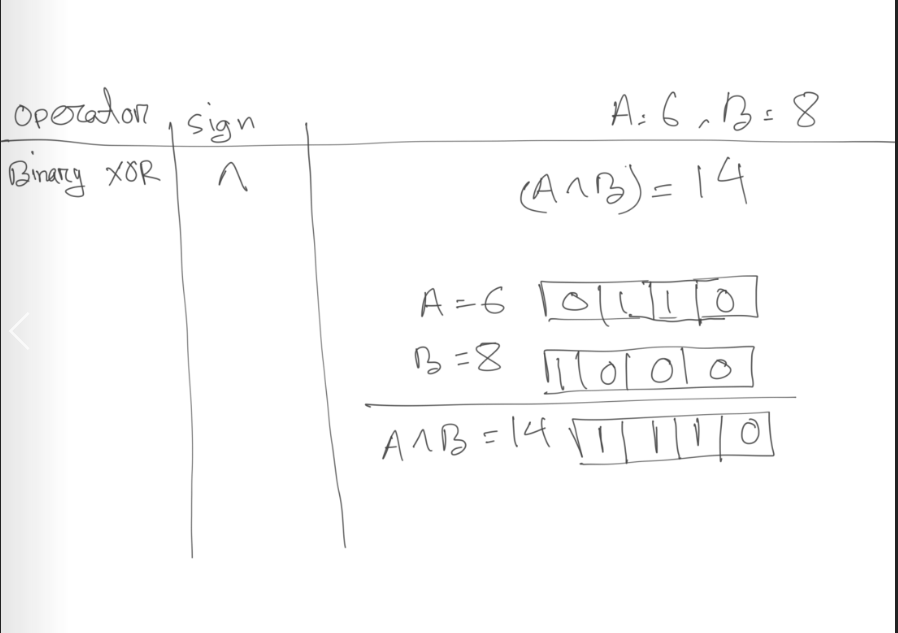 Operator sign A = 6, B = 8
Binary XOR ^ (A^B) = 14
A = 6 0 1 1 0
B = 8 1 0 0 0
A^B = 14 1 1 1 0